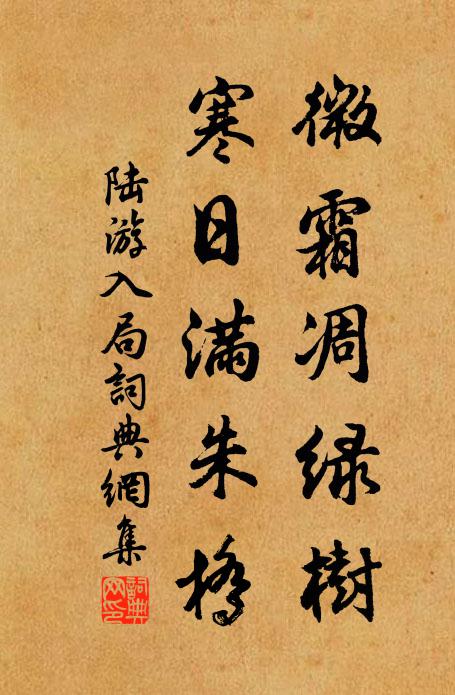 微霜凋緑樹
寒日滿朱橋
陸游入局詞典網集
詞典网印